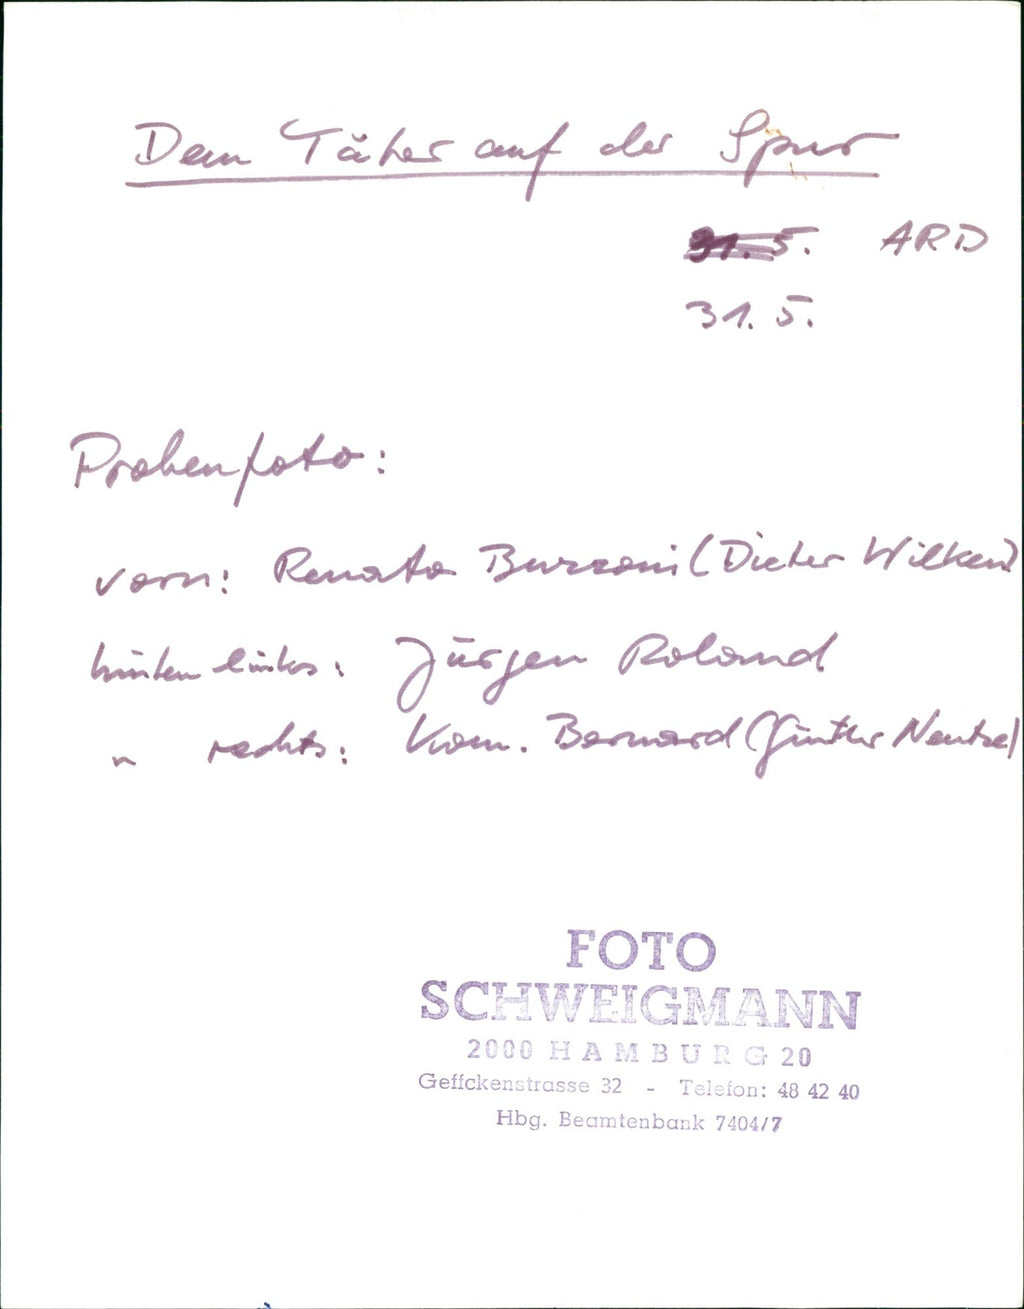 Dem Täter auf der Spur
31.5. ARD
31.5.
Probenfoto:
vorn: Renato Buzzoni (Dieter Wilken)
hinten links: Jürgen Roland
" rechts: Kom. Bernard (Günther Neutze)
FOTO
SCHWEIGMANN
2000 HAMBURG 20
Geffckenstrasse 32 - Telefon: 48 42 40
Hbg. Beamtenbank 7404/7